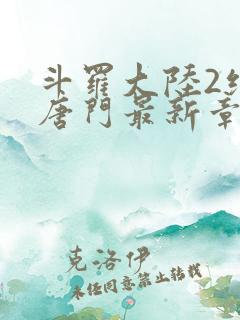 斗羅大陸2
唐門最新章
克洛伊
未經同意禁止轉載